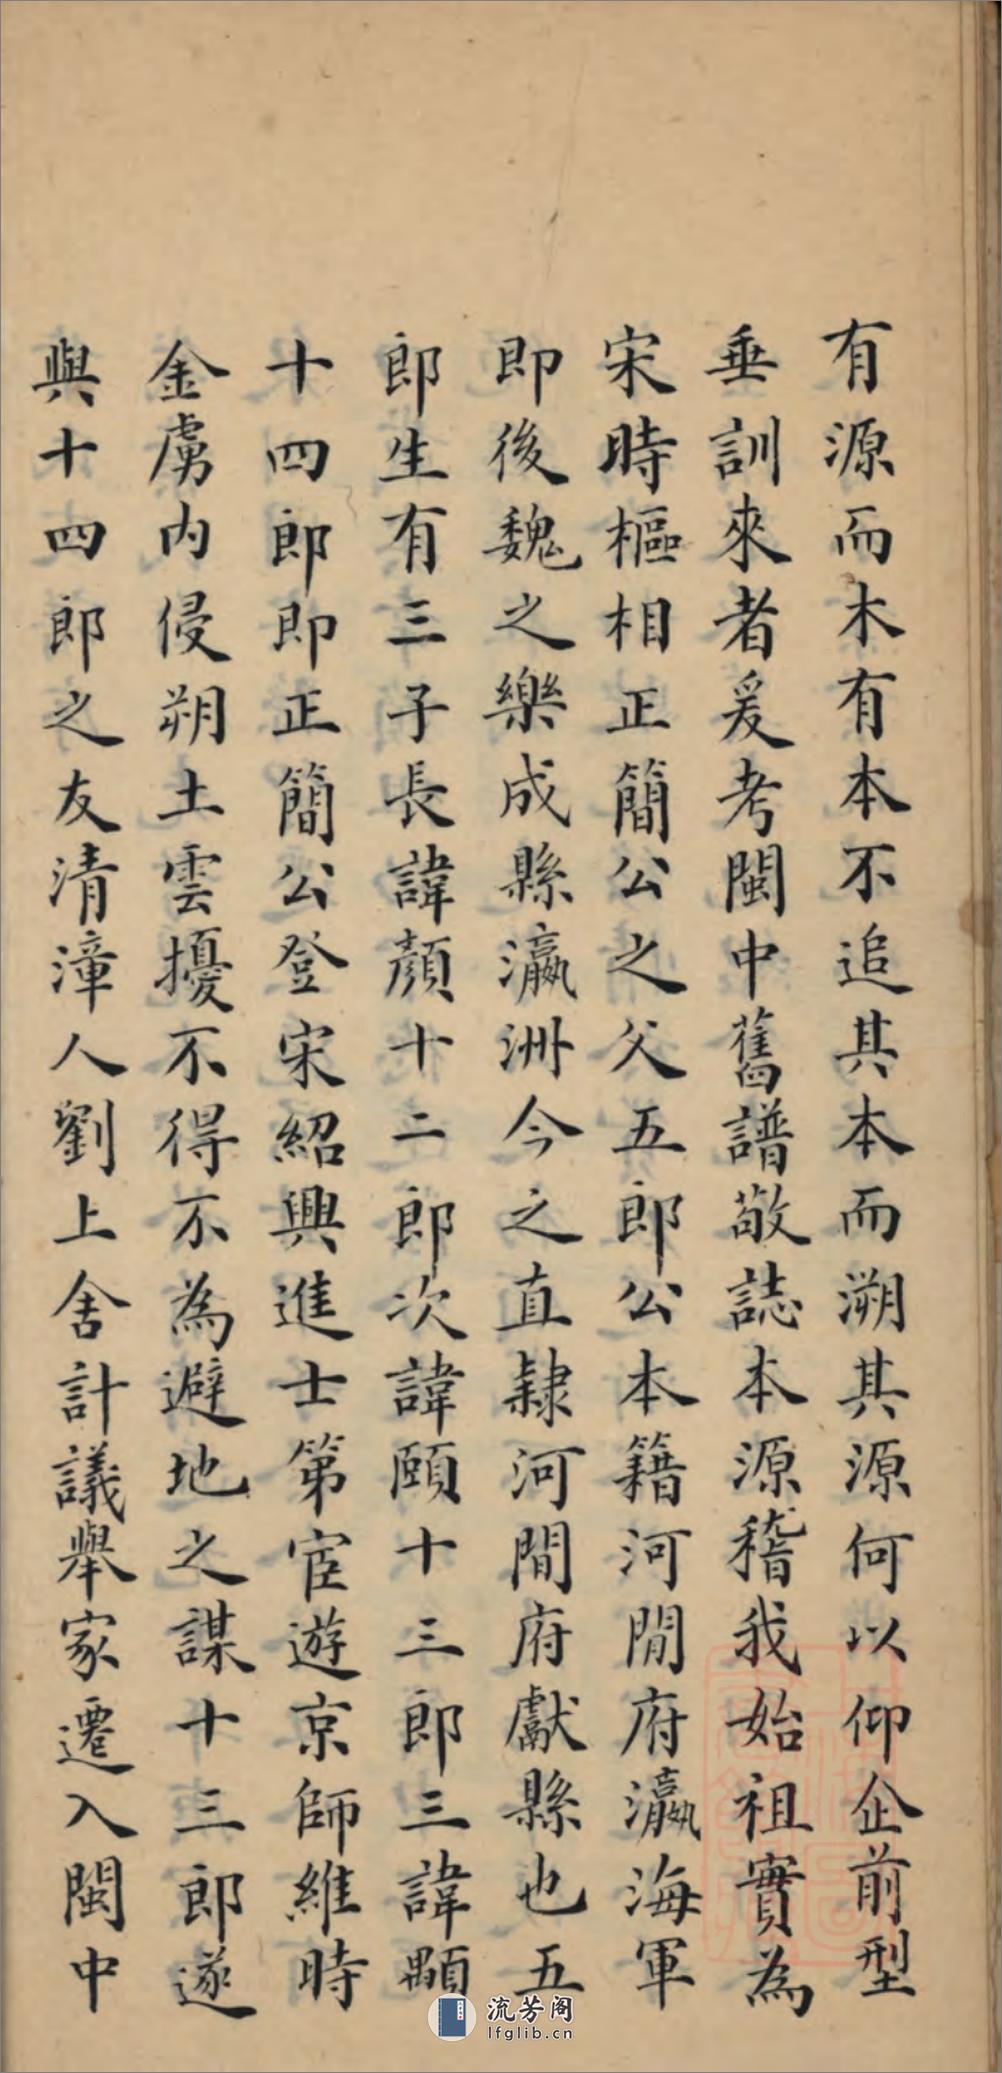 有源而木有本不追其本而溯其源何以仰企前型
垂訓來者爰考閩中舊譜敬誌本源稽我始祖實為
宋時樞相正簡公之父五郎公本籍河間府瀛海軍
即後魏之樂成縣瀛洲今之直隸河間府獻縣也五
郎生有三子長諱顏十二郎次諱頤十三郎三諱顒
十四郎即正簡公登宋紹興進士第宦遊京師維時
金虜內侵朔土雲擾不得不為避地之謀十三郎遂
與十四郎之友清漳人劉上舍計議舉家遷入閩中
流芳阁
lfglib.cn